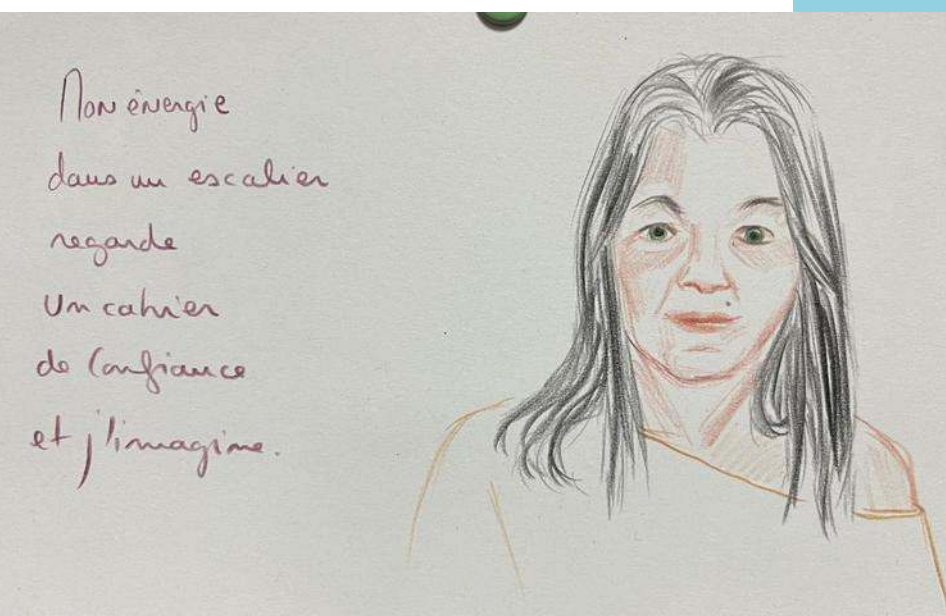 Mon énergie
dans un escalier
regarde
un cahier
de Confiance
et j'imagine.